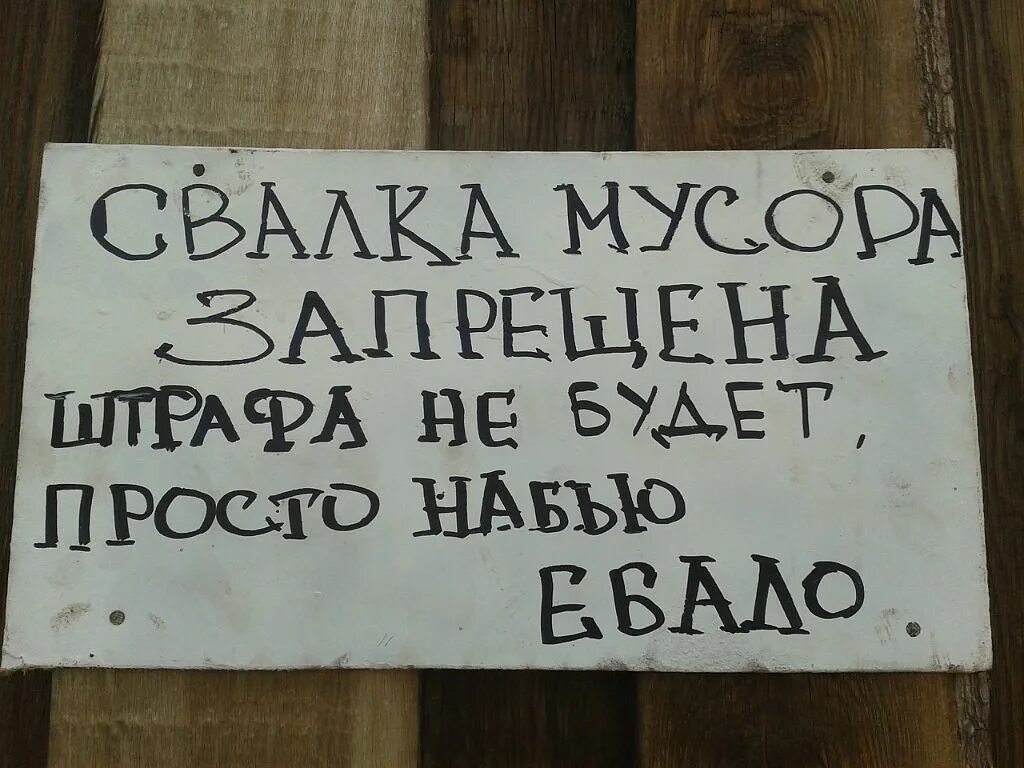 СВАЛКА МУСОРА
ЗАПРЕЩЕНА
ШТРАФА НЕ БУДЕТ,
ПРОСТО НАБЬЮ
ЕБАЛО